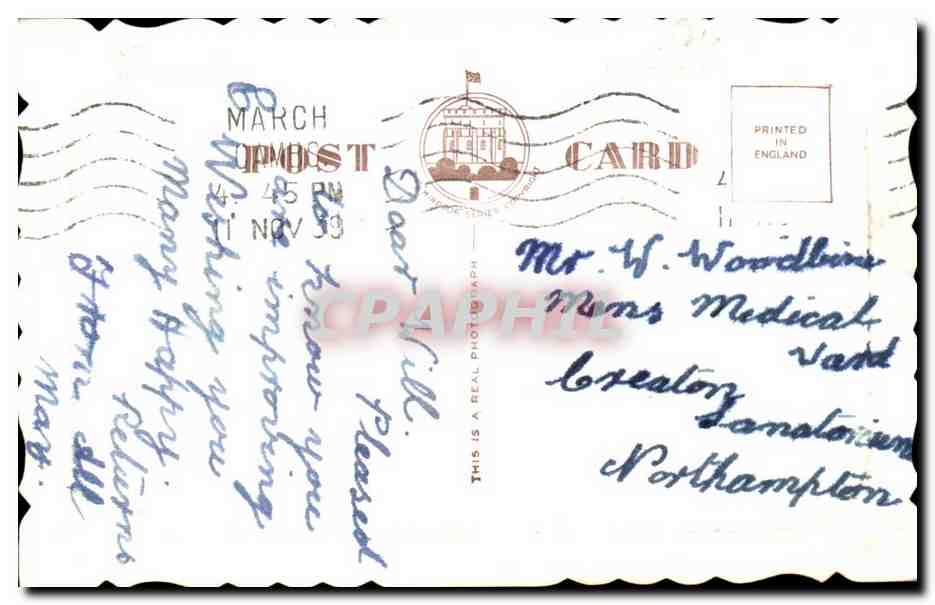 MARCH
CAMBS
4. 45 PM
11 NOV
POST CARD
PRINTED
IN
ENGLAND
THIS IS A REAL PHOTOGRAPH
CPAPHIL
Dear Will.
Pleased
to know you
are improving
& Wishing you
Many Happy.
Returns
From All
Mr. W. Woodbine
Mens Medical
Ward
Creaton
Sanatorium
Northampton